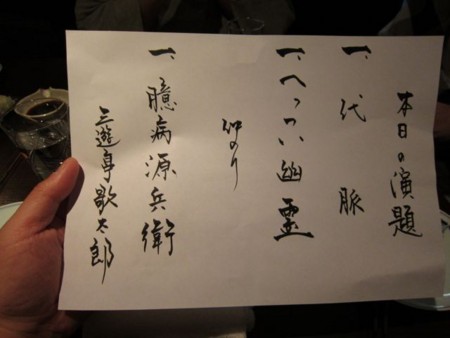 本日の演題
一、代脈
一、へっつい幽霊
仲のり
一、臆病源兵衛
三遊亭歌太郎